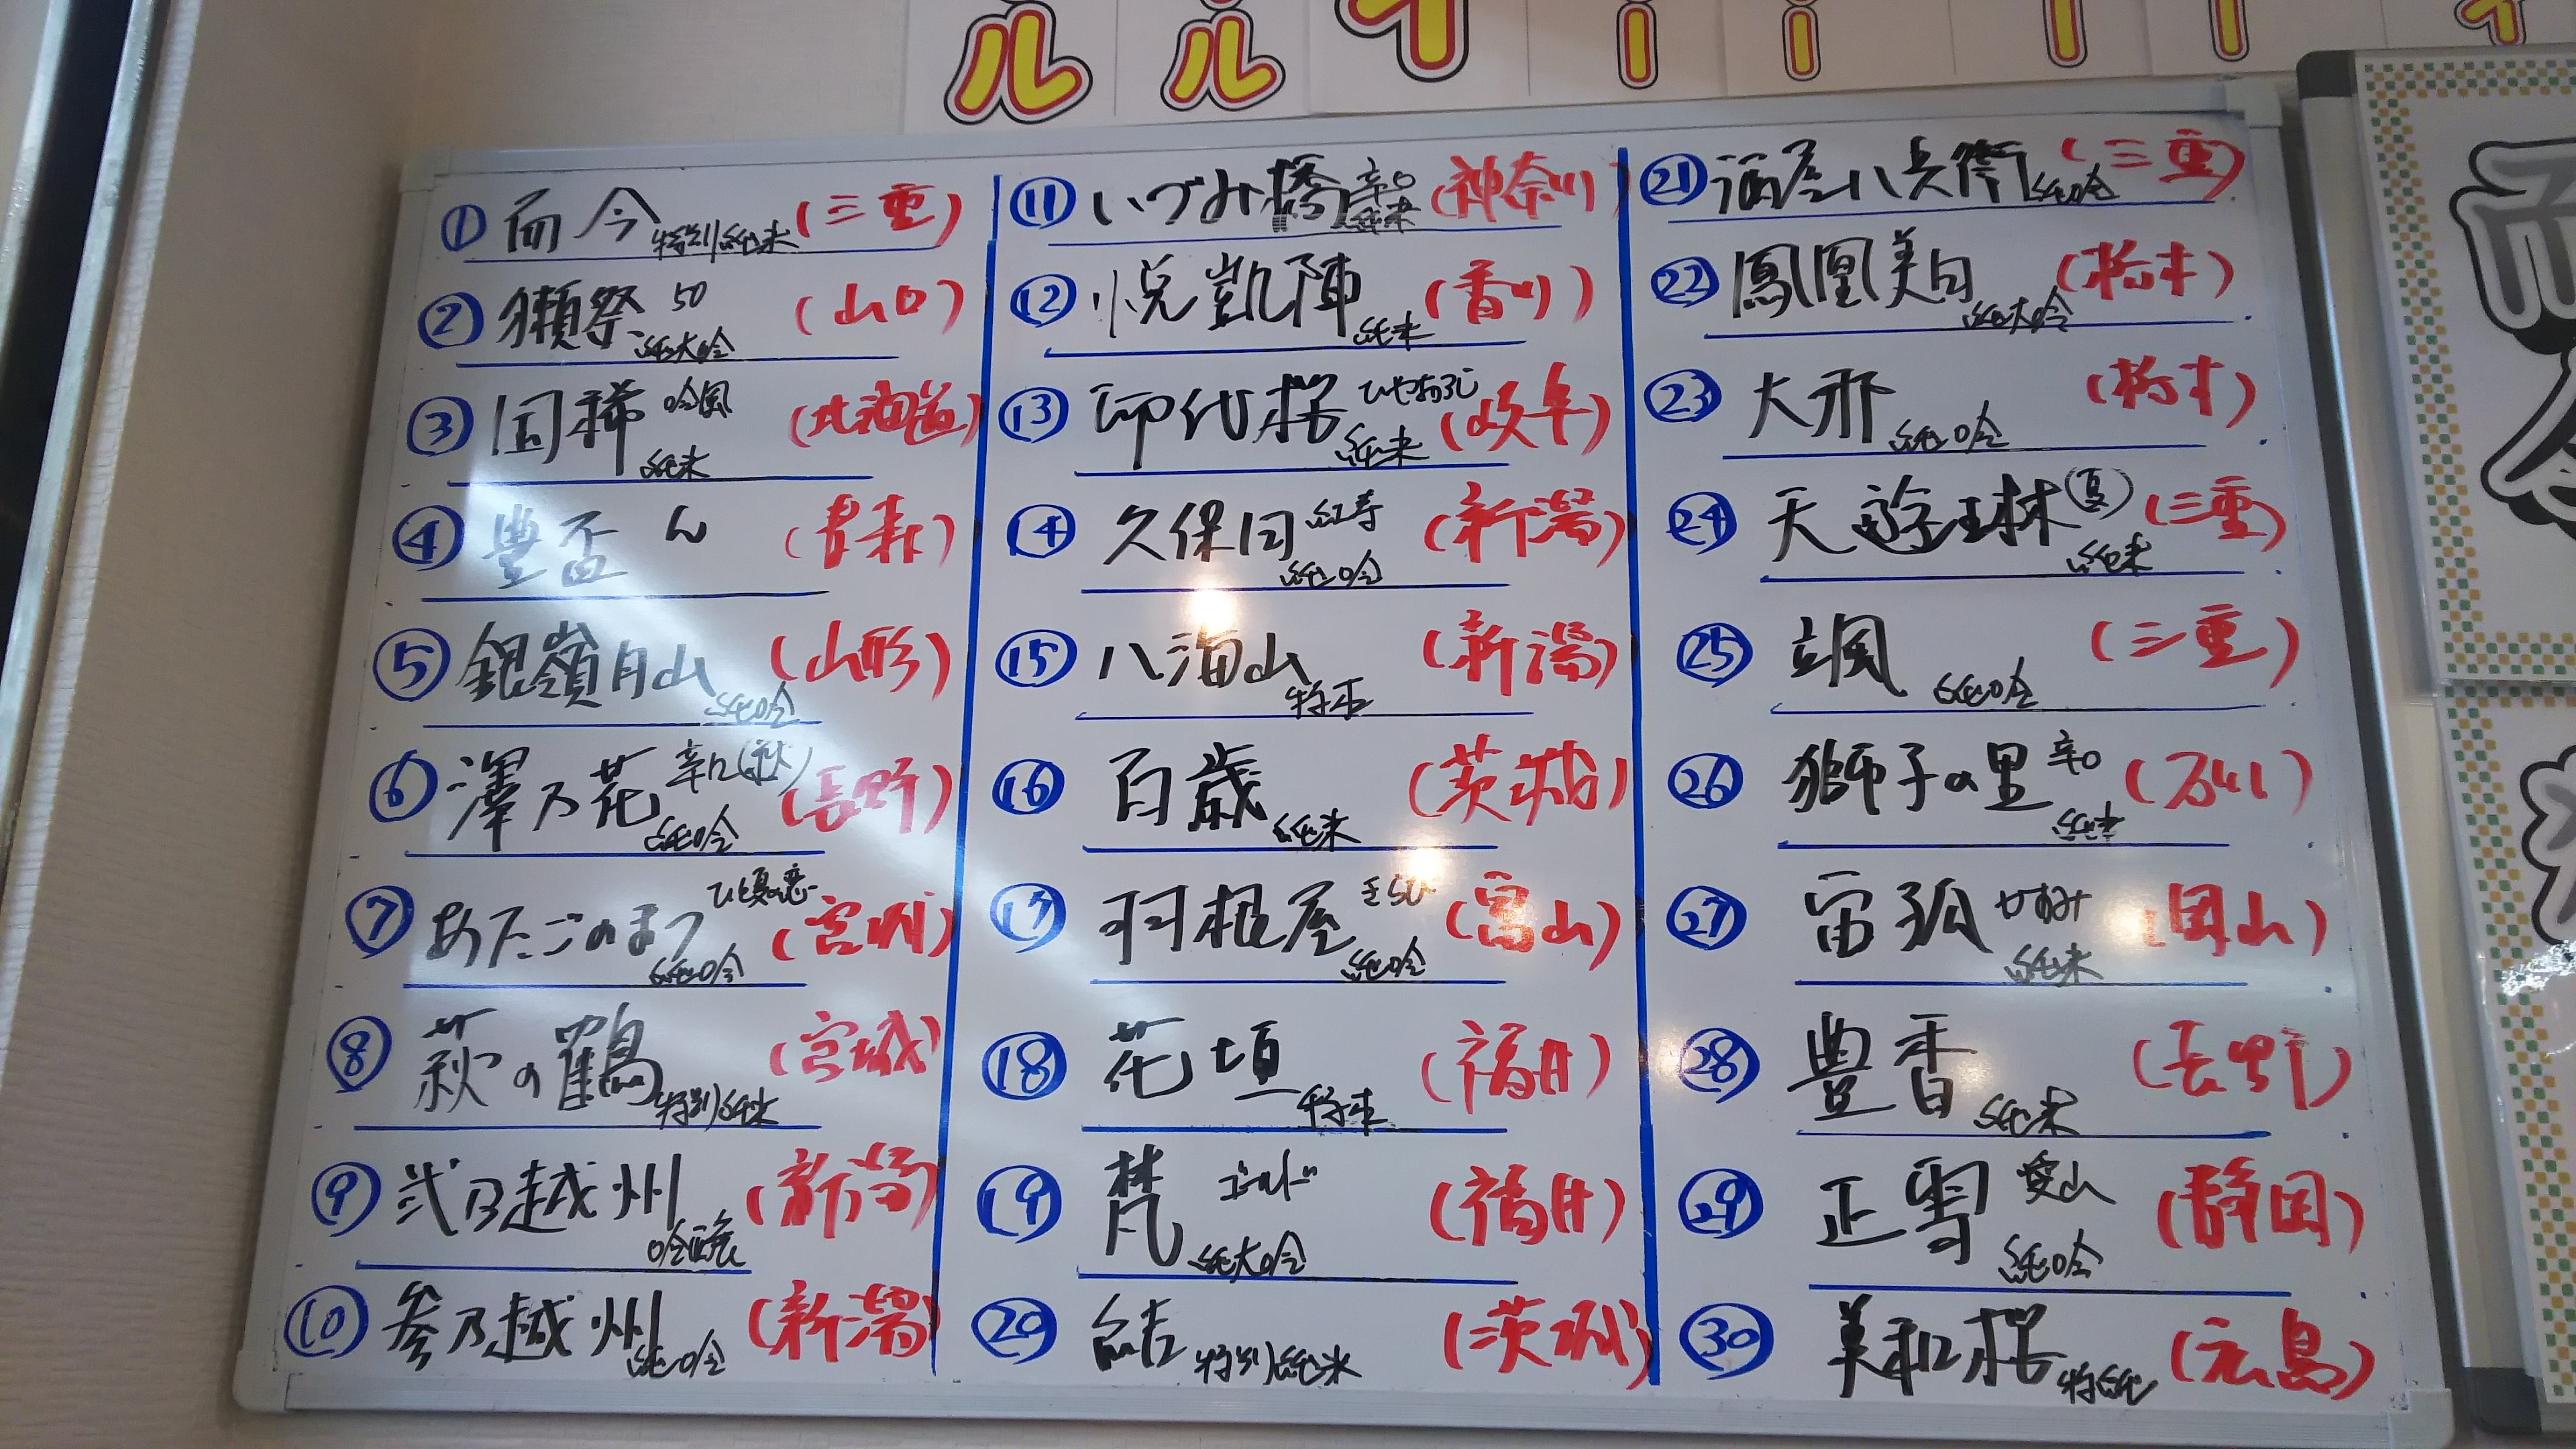 ① 而今 特別純米 (三重)
② 獺祭 50 純大吟 (山口)
③ 国稀 吟風 純米 (北海道)
④ 豊盃 ん (青森)
⑤ 銀嶺月山 純吟 (山形)
⑥ 澤乃花 辛口(秋) 純吟 (長野)
⑦ あたごのまつ ひと夏の恋 純吟 (宮城)
⑧ 萩の鶴 特別純米 (宮城)
⑨ 弐乃越州 (新潟)
⑩ 参乃越州 純吟 (新潟)
⑪ いづみ橋 辛口 純米 (神奈川)
⑫ 悦凱陣 純米 (香川)
⑬ 御代桜 ひやおろし 純米 (岐阜)
⑭ 久保田 紅寿 純吟 (新潟)
⑮ 八海山 特本 (新潟)
⑯ 百歳 純米 (茨城)
⑰ 羽根屋 純吟 (富山)
⑱ 花垣 特本 (福井)
⑲ 梵 ゴールド 純大吟 (福井)
⑳ 結 特別純米 (茨城)
㉑ 酒屋八兵衛 純吟 (三重)
㉒ 鳳凰美田 純大吟 (栃木)
㉓ 大那 純吟 (栃木)
㉔ 天遊琳 (夏) 純米 (三重)
㉕ 颯 純吟 (三重)
㉖ 獅子の里 辛口 純米 (石川)
㉗ 宙狐 純米 (岡山)
㉘ 豊香 純米 (長野)
㉙ 正雪 愛山 純吟 (静岡)
㉚ 美和桜 特純 (広島)